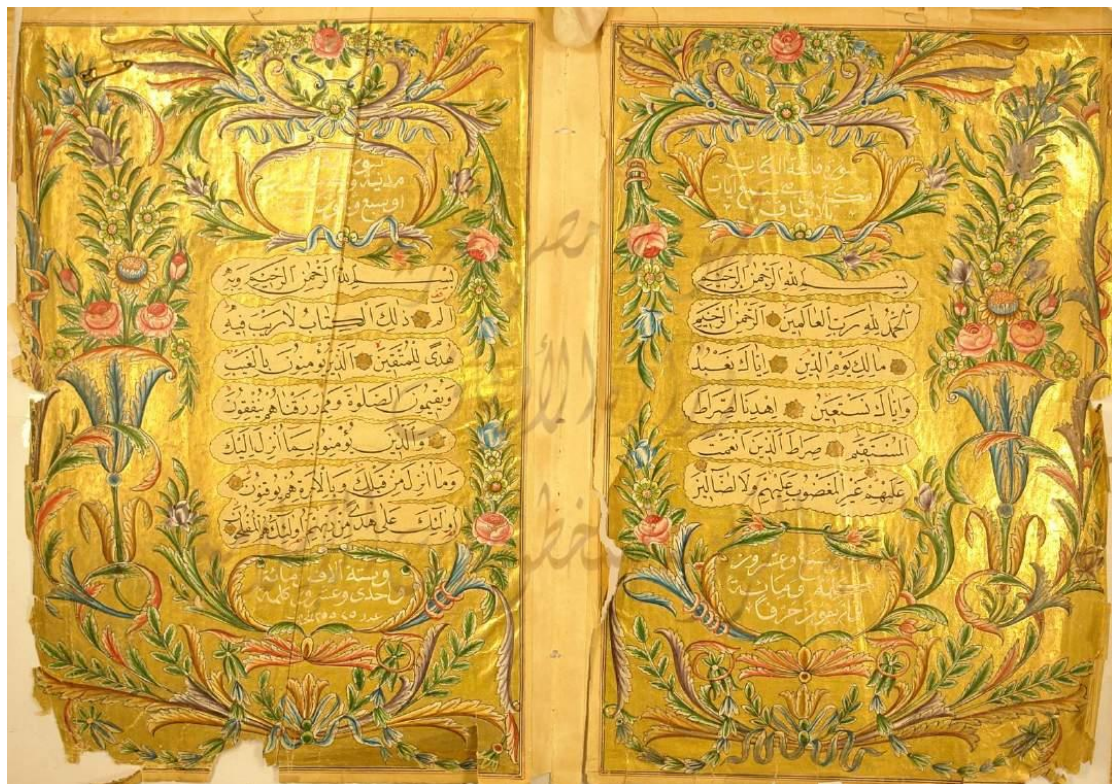 سورة فاتحة الكتاب
سبع آيات
بالاتفاق
بسم الله الرحمن الرحيم
الحمد لله رب العالمين الرحمن الرحيم
مالك يوم الدين اياك نعبد
واياك نستعين اهدنا الصراط
المستقيم صراط الذين انعمت
عليهم غير المغضوب عليهم ولا الضالين
وعشرون
كلمة ومائة
حرفا
بسم الله الرحمن الرحيم وبه
الم ذلك الكتاب لا ريب فيه
هدى للمتقين الذين يؤمنون بالغيب
ويقيمون الصلوة ومما رزقناهم ينفقون
والذين يؤمنون بما انزل اليك
وما انزل من قبلك وبالاخرة هم يوقنون
اولئك على هدى من ربهم واولئك هم المفلحون
وستة آلاف ومائة
واحدى وعشرون كلمة